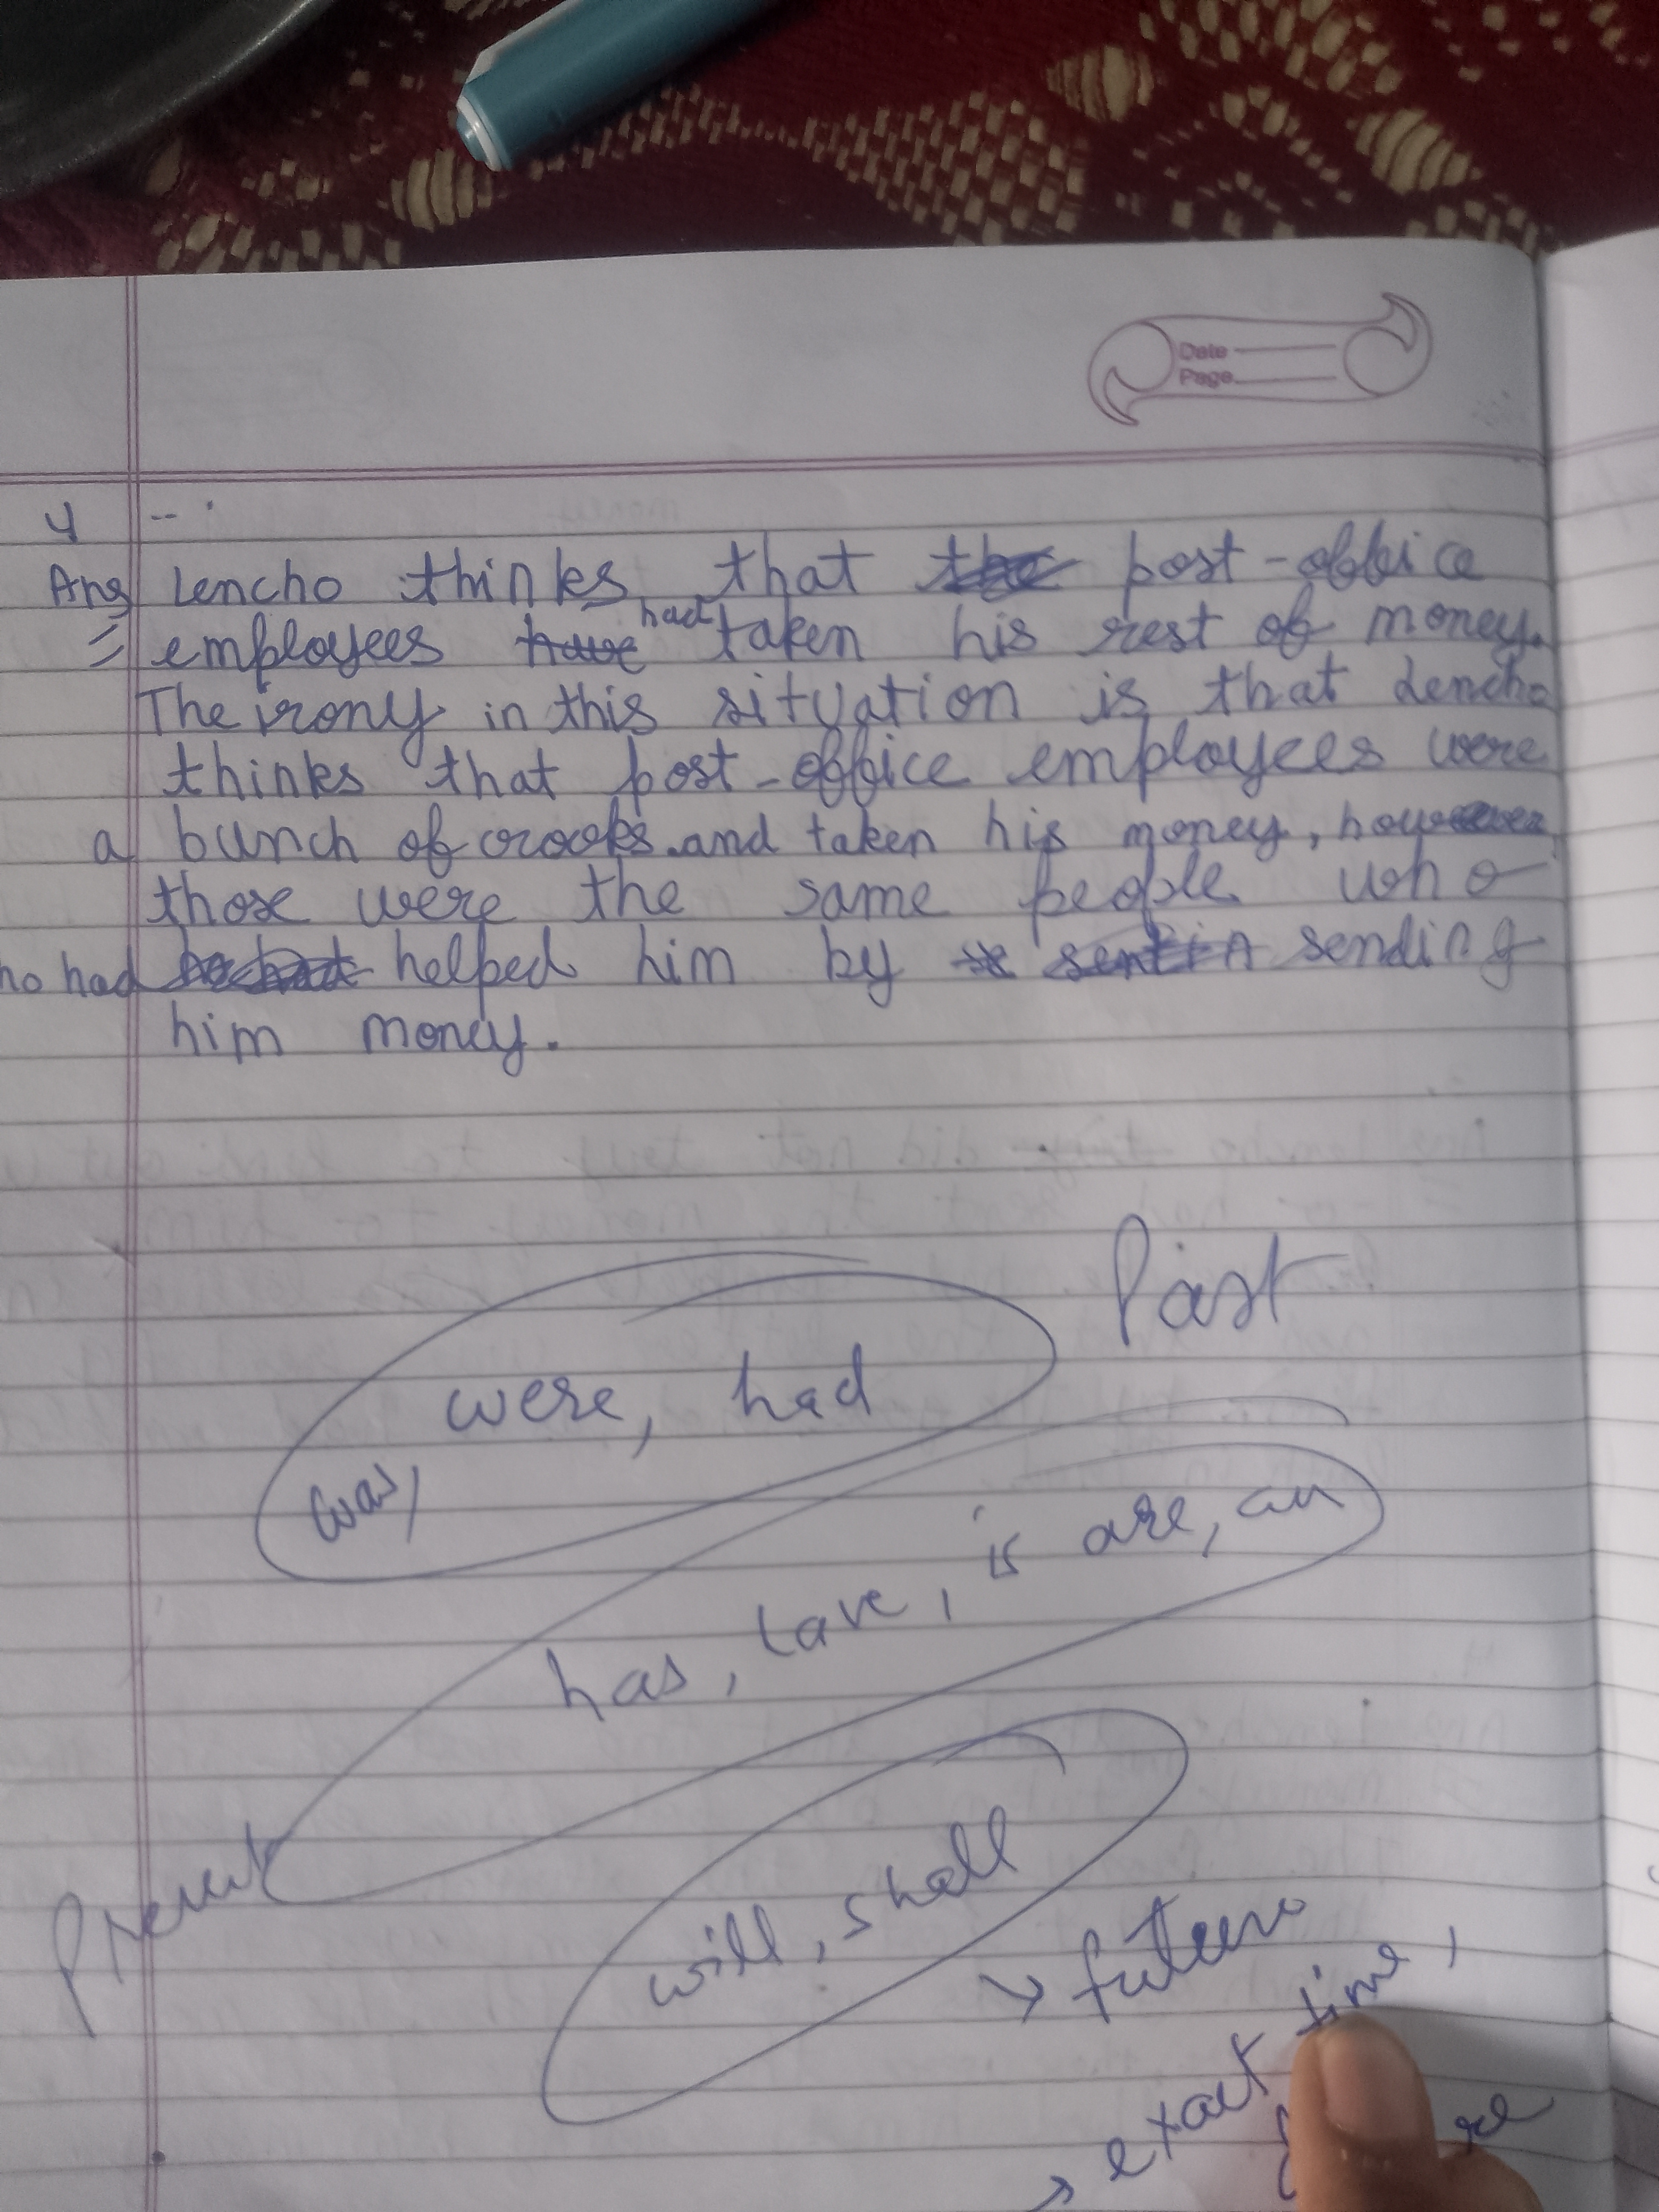 Date
Page
4 --.
Ans Lencho thinks that the post-office
= employees have had taken his rest of money.
The irony in this situation is that Lencho
thinks that post-office employees were
a bunch of crooks and taken his money, however
those were the same people who
ho had helped him by sending
him money.
Past
were, had
was,
is are, am
has, have,
Present
will, shall
→ future
exact time,